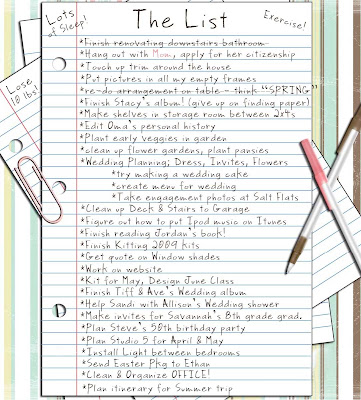 Lots
of Sleep!
The List
Exercise!
Lose
10 lbs!
*Finish renovating downstairs bathroom
*Hang out with Mom, apply for her citizenship
*Touch up trim around the house
*Put pictures in all my empty frames
*re-do arrangement on table - think "SPRING"
*Finish Stacy's album! (give up on finding paper)
*Make shelves in storage room between 2x4s
*Edit Oma's personal history
*Plant early veggies in garden
*clean up flower gardens, plant pansies
*Wedding Planning; Dress, Invites, Flowers
*try making a wedding cake
*create menu for wedding
*Take engagement photos at Salt Flats
*Clean up Deck & Stairs to Garage
*Figure out how to put Ipod music on Itunes
*Finish reading Jordan's book!
*Finish Kitting 2009 kits
*Get quote on Window shades
*Work on website
*Kit for May, Design June Class
*Finish Tiff & Ave's Wedding album
*Help Sandi with Allison's Wedding shower
*Make invites for Savannah's 8th grade grad.
*Plan Steve's 50th birthday party
*Plan Studio 5 for April & May
*Install Light between bedrooms
*Send Easter Pkg to Ethan
*Clean & Organize OFFICE!
*Plan itinerary for Summer trip